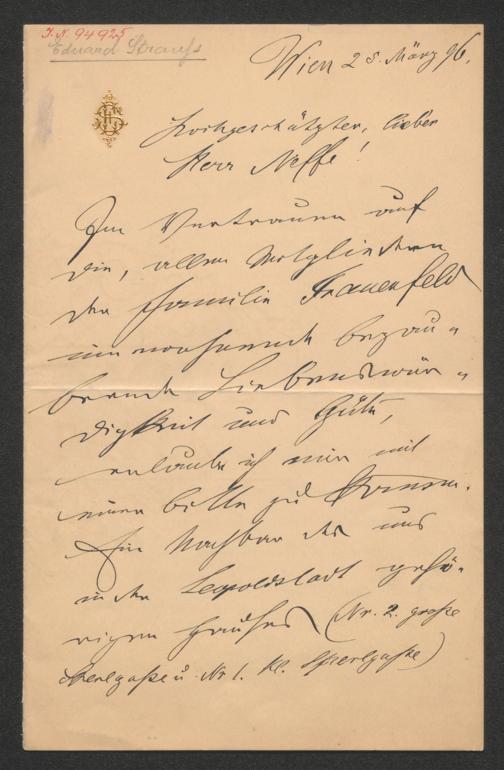 I. N. 94925
Eduard Strauß
Wien 28. März 96.
Hochgeschätzter, lieber
Herr Neffe!
Im Vertrauen auf
die, allen Mitgliedern
der Familie Frauenfeld
innewohnende bezau-
bernde Liebenswür-
digkeit und Güte,
erlaube ich mir mit
einer Bitte zu kommen.
Ein Nachbar des uns
in der Leopoldstadt gehö-
rigen Hauses (Nr. 2. große
Sperlgaße u. Nr 1. kl. Sperlgaße)